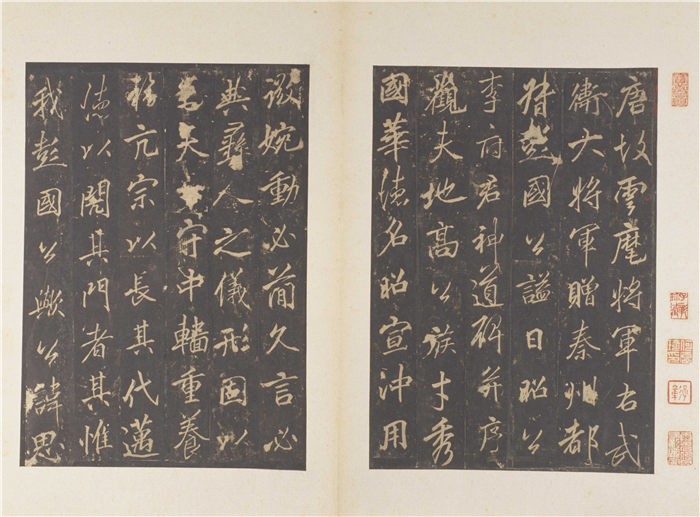 唐故雲麾將軍右武
衛大將軍贈秦州都
督彭國公諡曰昭公
李府君神道碑并序
觀夫地高公族才秀
國華德名昭宣沖用
微婉動必簡久言必
典彝人之儀形固以
夫守中輜重養
亢宗以長其代邁
德以閥其門者其惟
我彭國公歟公諱思